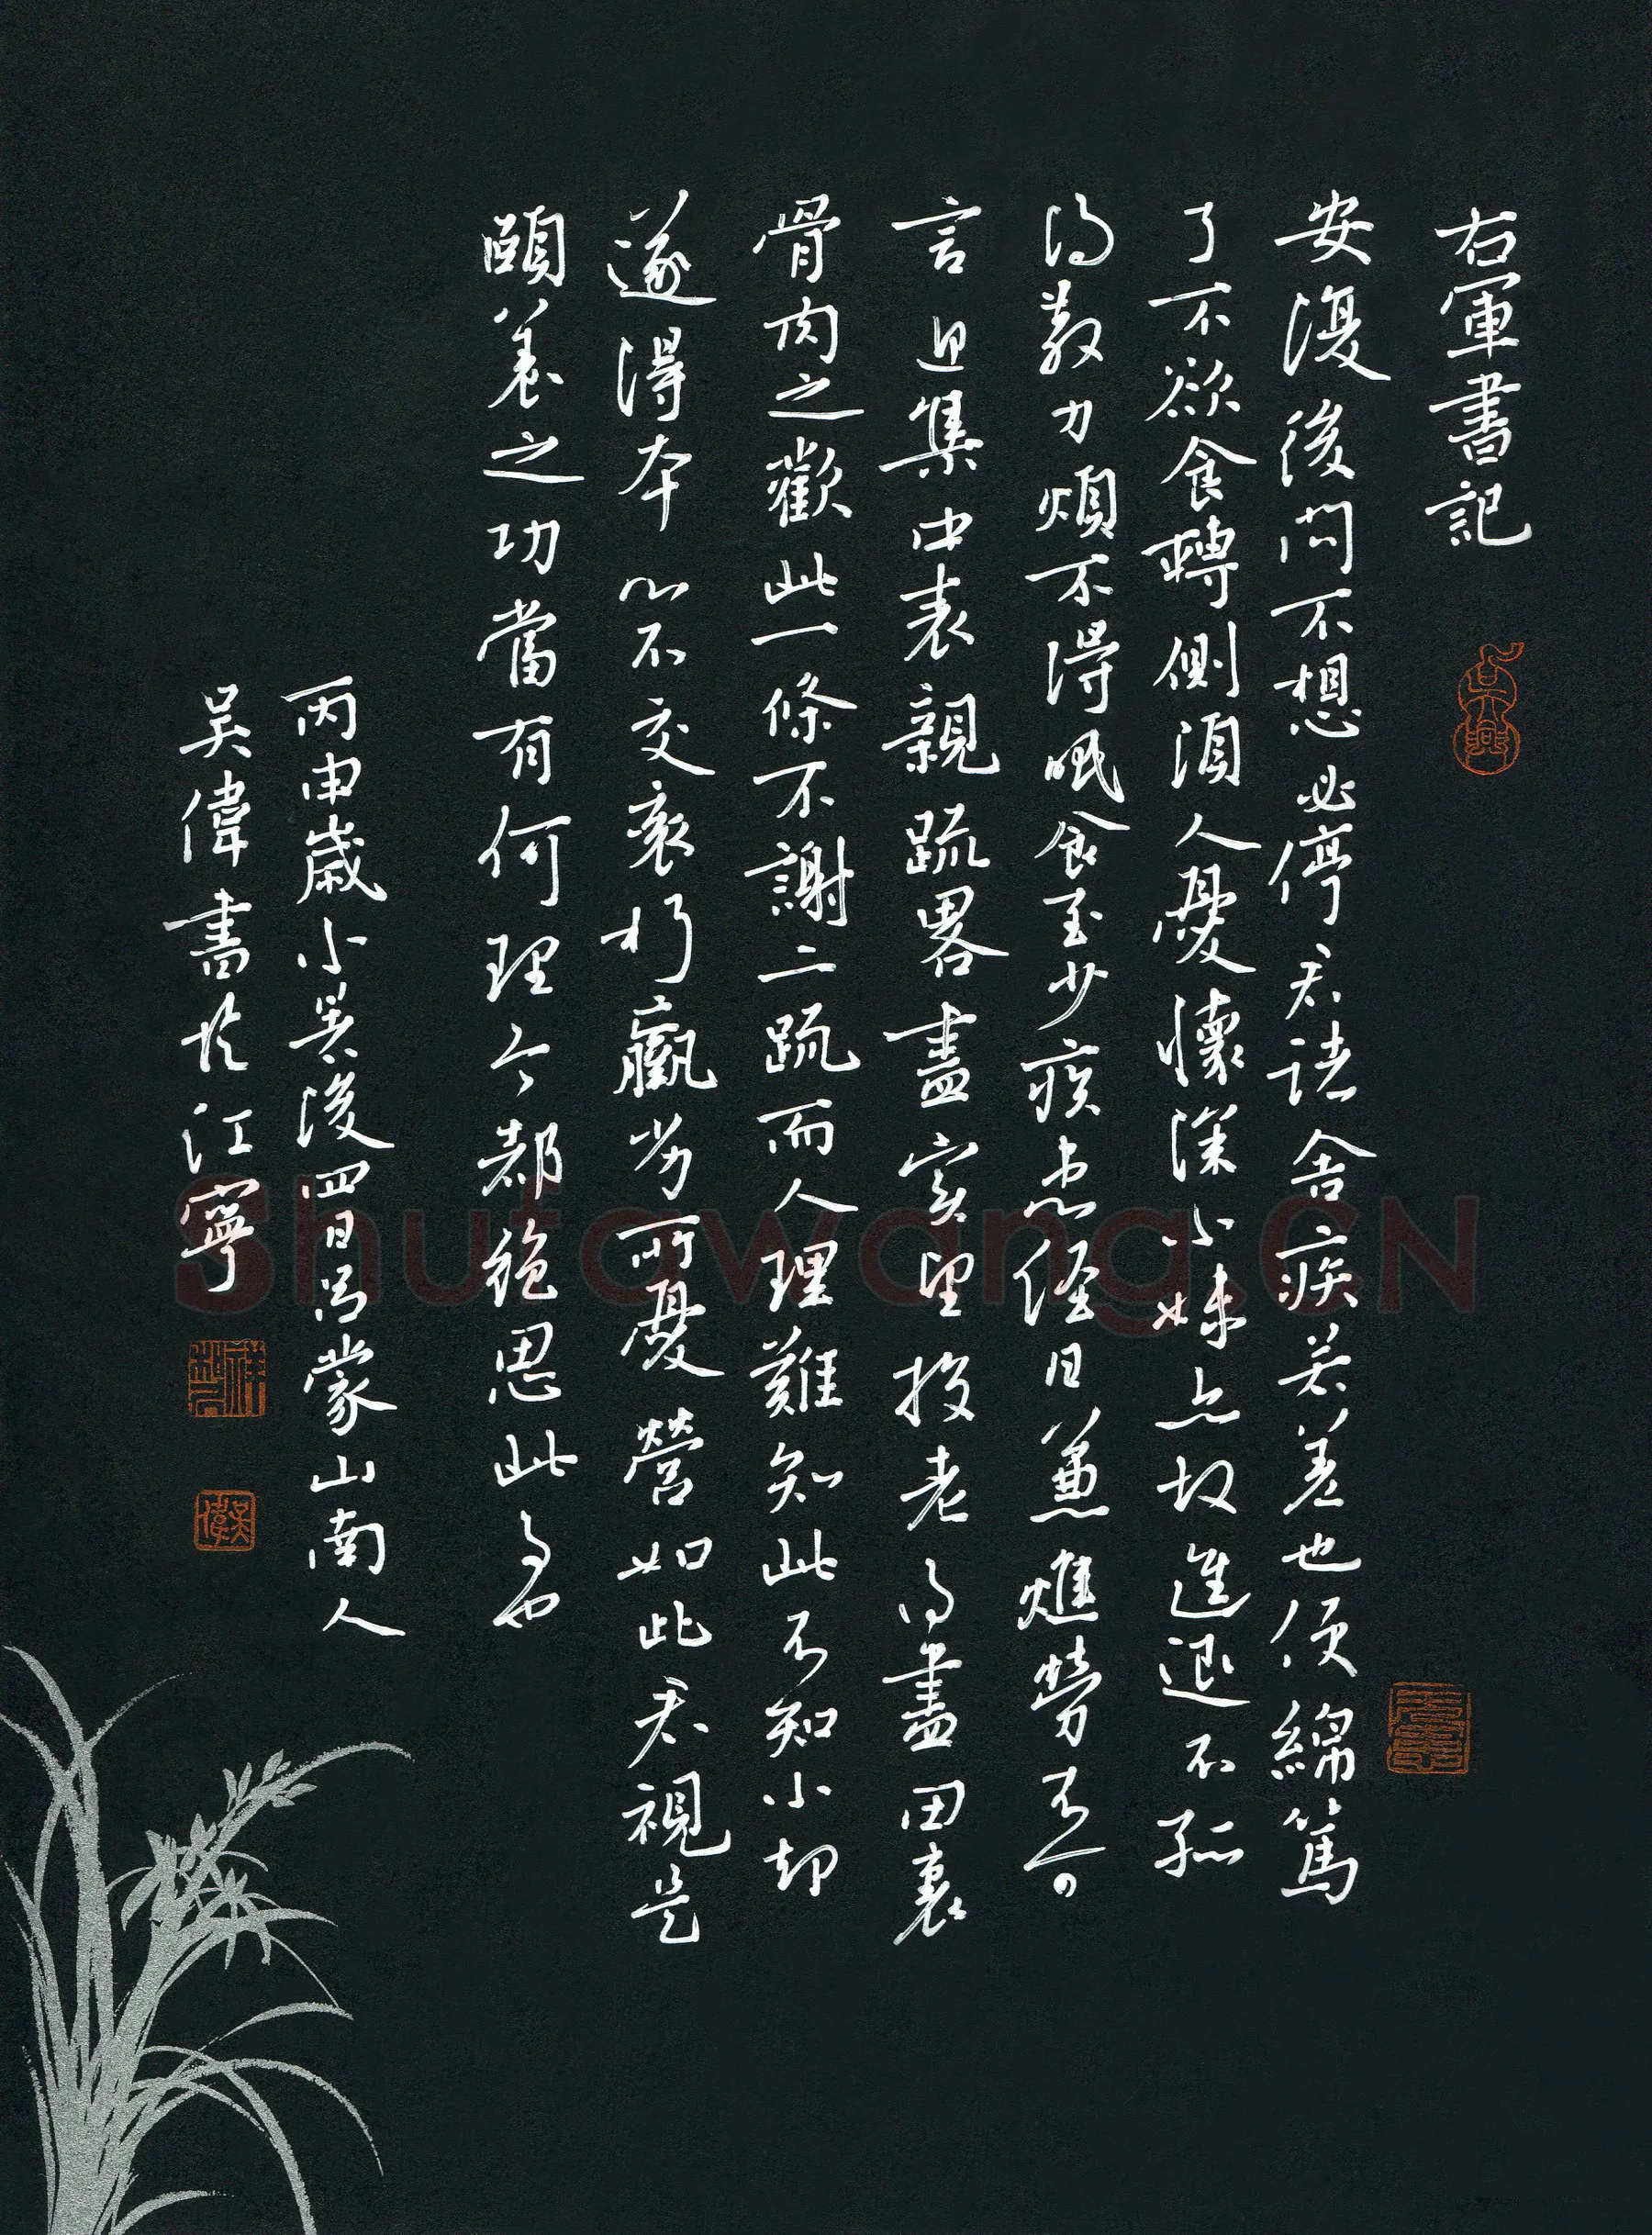 右軍書記
安復後問不想必停君諸舍疾若差也須綿篤
了不欲食轉側須人憂懷深小妹亦故進退不孤
得散力煩不得眠食至少疾患經日兼燋勞不可
言迎集中表親疏略盡實望投老得盡田裏
骨肉之歡此一條不謝二疏而人理難知此不知小却
遂得本心不交衰朽羸劣所憂營如此君視是
頤養之功當有何理今都絕思此事也
丙申歲小暑後四日昌蒙山南人
吳偉書於江寧
Shufawang.CN